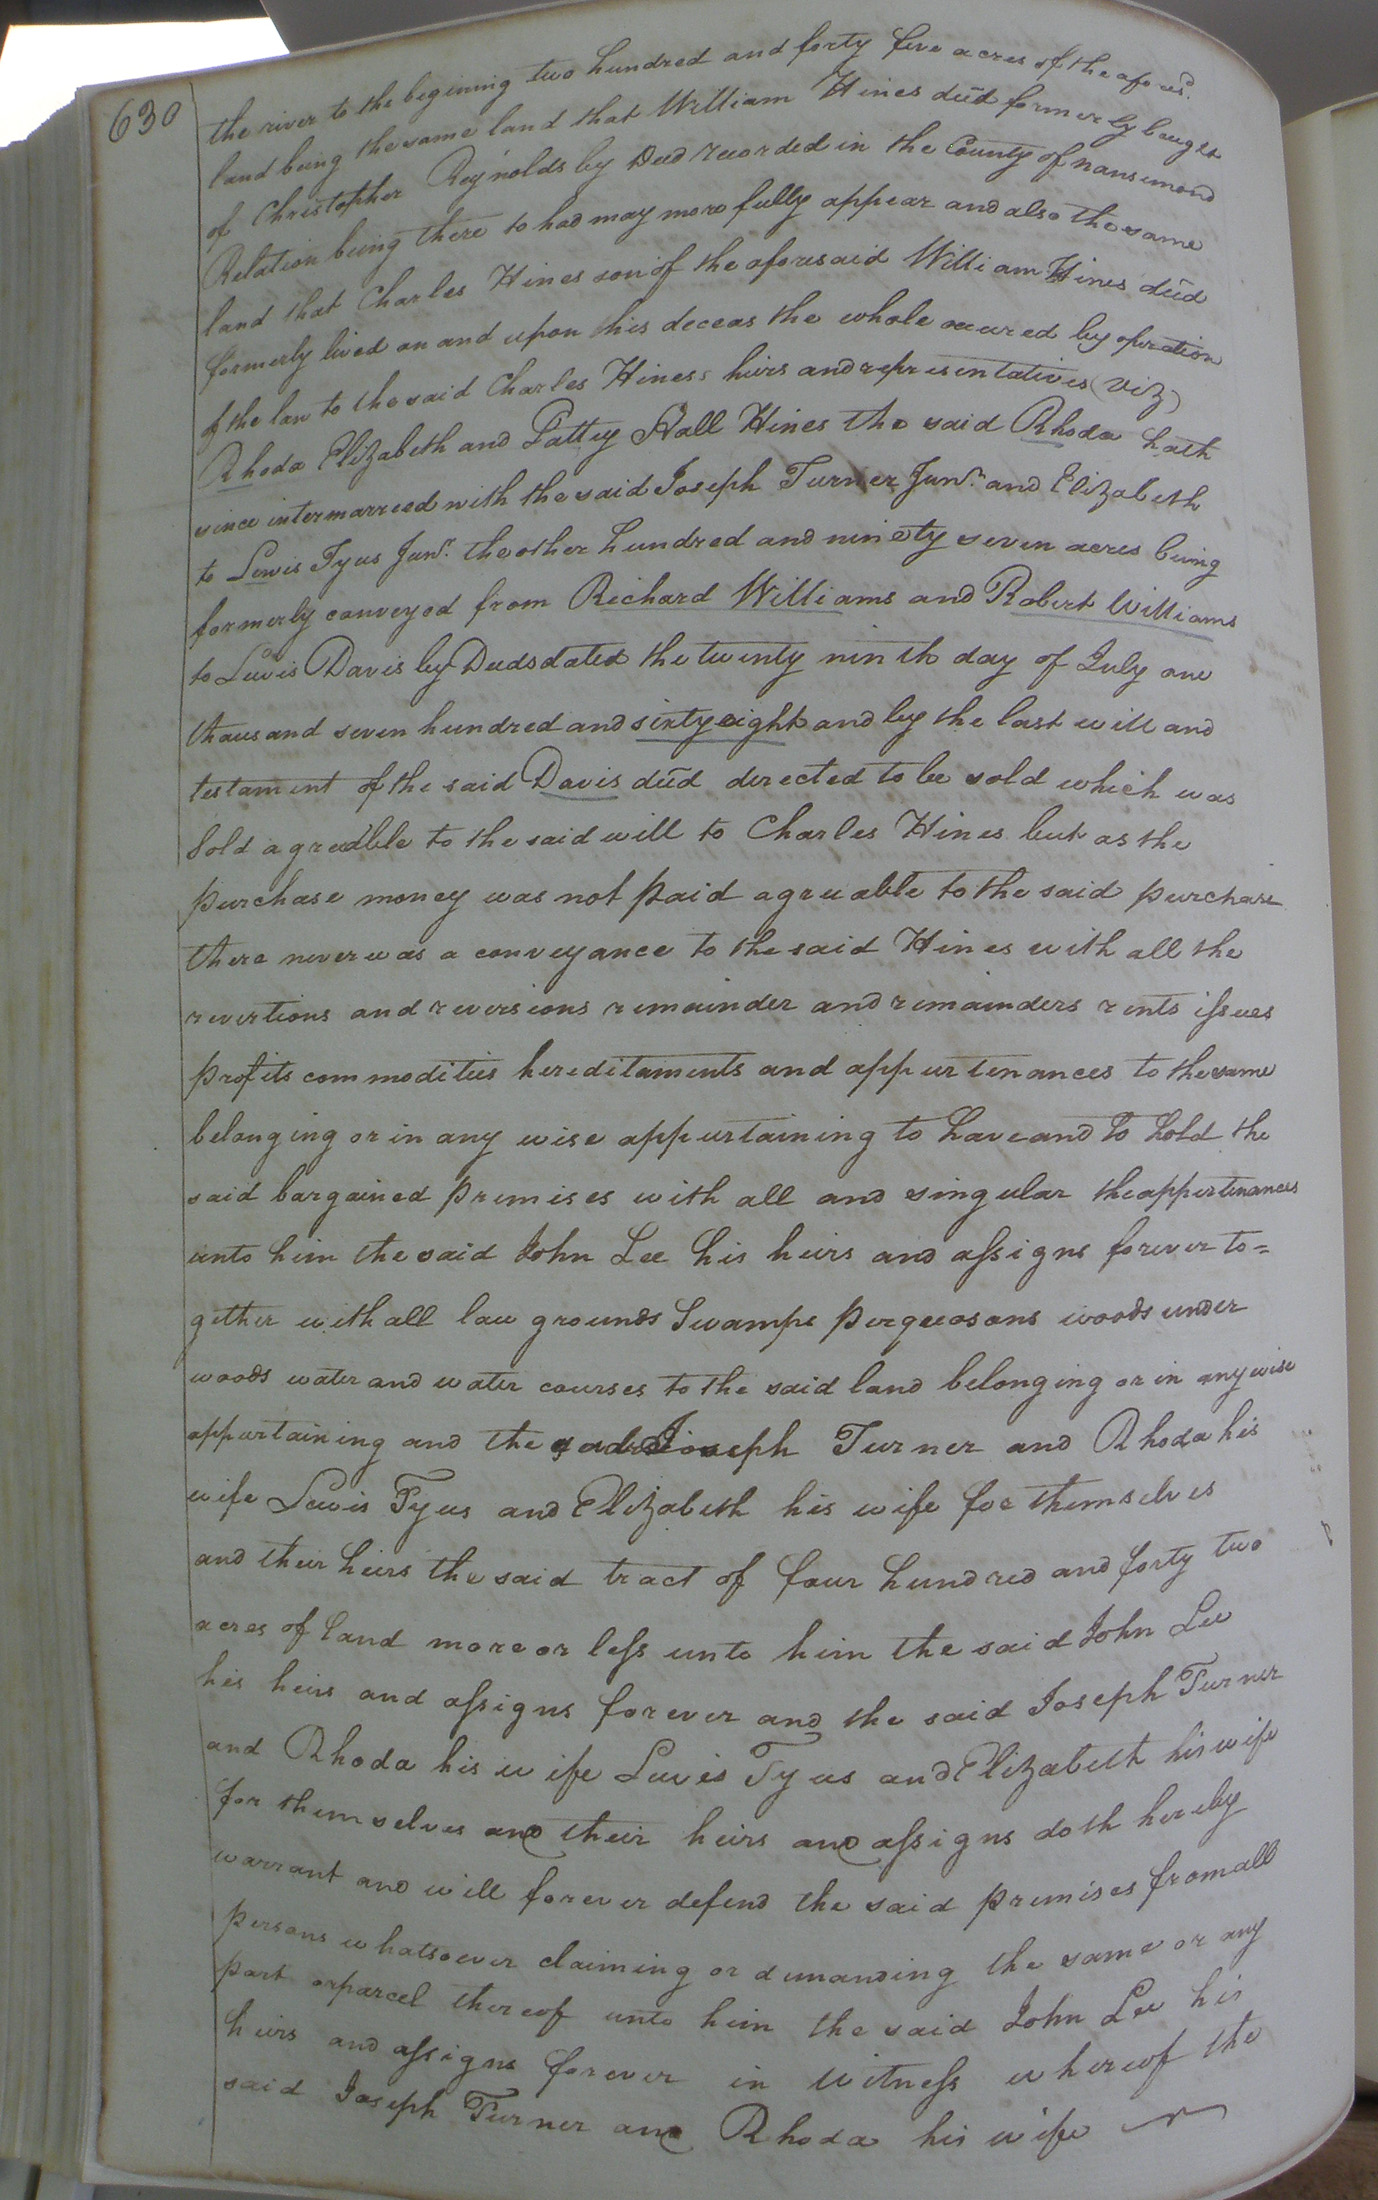 630
the river to the begining two hundred and forty five acres of the afores.d
land being the same land that William Hines decd formerly baught
of Christopher Reynolds by Deed recorded in the County of nansemond
Relation being there to had may more fully appear and also the same
land that Charles Hines son of the aforesaid William Hines decd
formerly lived on and upon his deceas the whole accured by opration
of the law to the said Charles Hines's heirs and representatives (viz)
Rhoda Elizabeth and Pattey Hall Hines the said Rhoda hath
since intermarreed with the said Joseph Turner Junr. and Elizabeth
to Lewis Tyus Junr. the other hundred and ninety seven acres being
formerly conveyed from Richard Williams and Robert Williams
to Lewis Davis by Deeds dated the twenty ninth day of July one
thousand seven hundred and sixty eight and by the last will and
testament of the said Davis decd derected to be sold which was
sold agreeable to the said will to Charles Hines but as the
purchase money was not paid agreeable to the said purchase
there never was a conveyance to the said Hines with all the
revertions and reversions remainder and remainders rents issues
profits commodities hereditaments and appurtenances to the same
belonging or in any wise appurtaining to have and to hold the
said bargained premises with all and singular the appertenances
unto him the said John Lee his heirs and assigns forever to=
gether with all law grounds Swamps perquosons woods under
woods water and water courses to the said land belonging or in any wise
appurtaining and the said Joseph Turner and Rhoda his
wife Lewis Tyus and Elizabeth his wife for themselves
and their heirs the said tract of four hundred and forty two
acres of land more or less unto him the said John Lee
his heirs and assigns forever and the said Joseph Turner
and Rhoda his wife Lewis Tyus and Elizabeth his wife
for themselves and their heirs and assigns doth hereby
warrant and will forever defend the said premises from all
persons whatsoever claiming or demanding the same or any
part or parcel thereof unto him the said John Lee his
heirs and assigns forever in witness whereof the
said Joseph Turner and Rhoda his wife